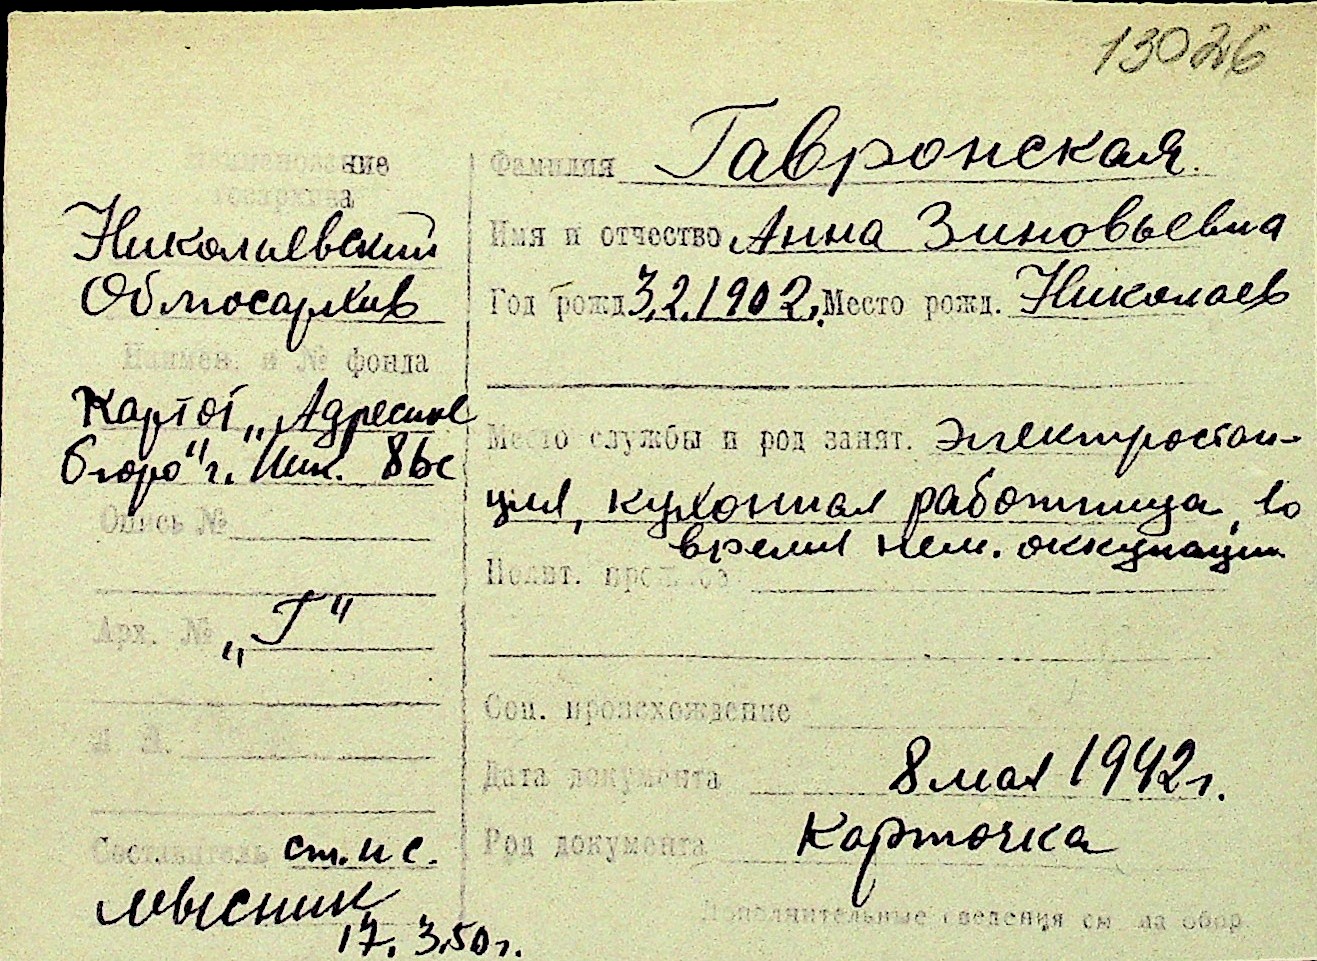 13026
Наименование
госархива
Николаевский
Облгосархив
Наимен. и № фонда
Картот. „Адресное
бюро" г. Ник.
Опись №
Арх. № „Г"
Л. Л.
Составитель ст. н с.
Мысник
17. 3.50 г.
Фамилия Гавронская.
Имя и отчество Анна Зиновьевна
Год рожд. 3.2.1902. Место рожд. Николаев
Место службы и род занят. Электростан-
ция, кухонная работница, во
время нем. оккупации
Полит. прошлое
Соц. происхождение
Дата документа 8 мая 1942 г.
Род документа Карточка
Дополнительные сведения см. на обор.